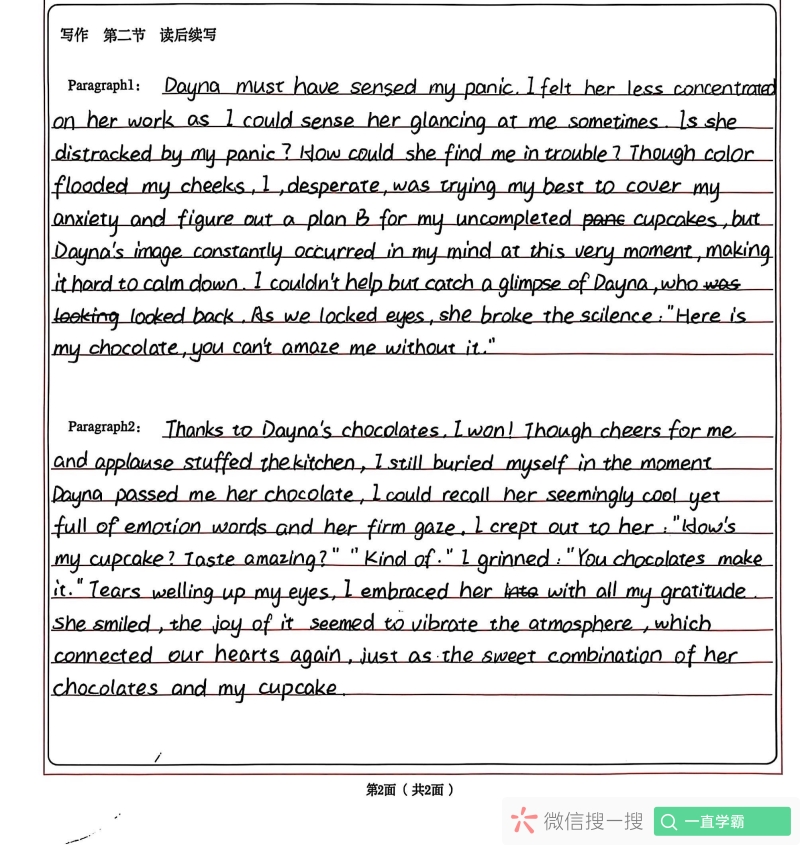 写作 第二节 读后续写
Paragraph1: Dayna must have sensed my panic. I felt her less concentrated
on her work as I could sense her glancing at me sometimes. Is she
distracked by my panic? How could she find me in trouble? Though color
flooded my cheeks, I, desperate, was trying my best to cover my
anxiety and figure out a plan B for my uncompleted panc cupcakes, but
Dayna's image constantly occurred in my mind at this very moment, making
it hard to calm down. I couldn't help but catch a glimpse of Dayna, who was
looking looked back. As we locked eyes, she broke the scilence: "Here is
my chocolate, you can't amaze me without it."
Paragraph2: Thanks to Dayna's chocolates, I won! Though cheers for me
and applause stuffed the kitchen, I still buried myself in the moment
Dayna passed me her chocolate, I could recall her seemingly cool yet
full of emotion words and her firm gaze. I crept out to her: "How's
my cupcake? Taste amazing?" "Kind of." I grinned: "You chocolates make
it." Tears welling up my eyes, I embraced her into with all my gratitude.
She smiled, the joy of it seemed to vibrate the atmosphere, which
connected our hearts again, just as the sweet combination of her
chocolates and my cupcake.
第2面（共2面）
微信搜一搜 一直学霸